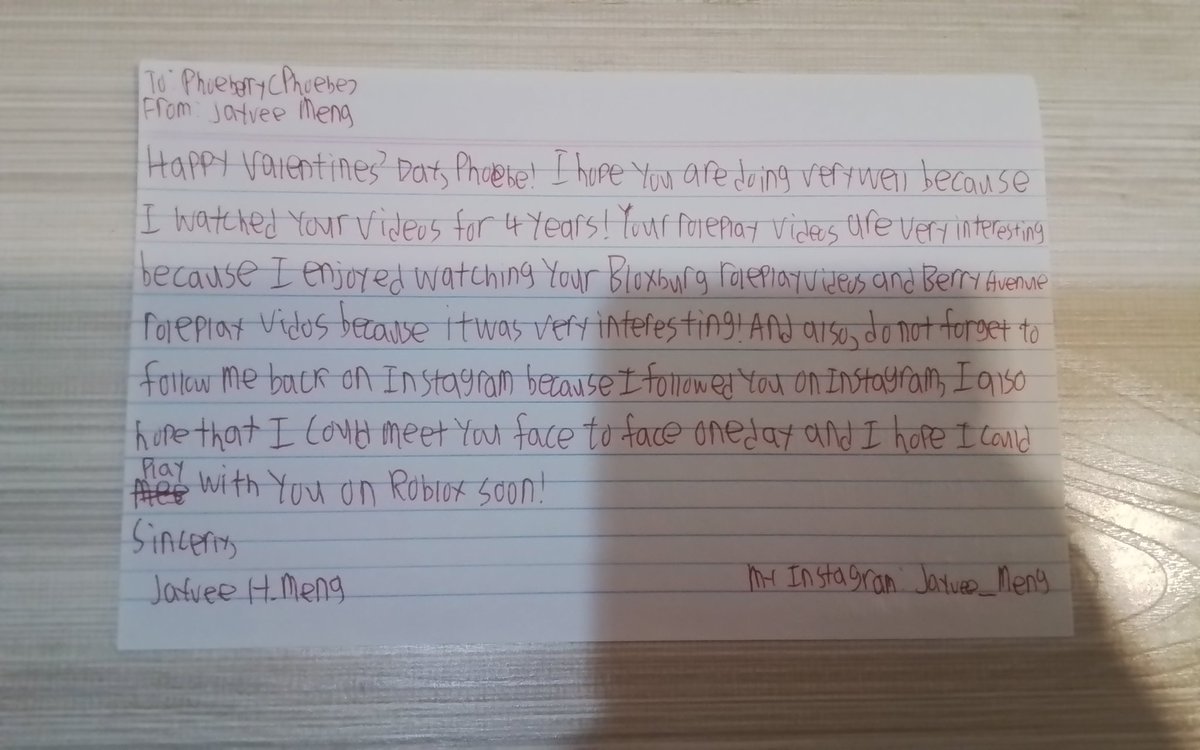 To: Phoeberry (Phoebe)
From: Jayvee Meng
Happy Valentines' Day, Phoebe! I hope you are doing very well because
I watched your videos for 4 years! Your roleplay videos are very interesting
because I enjoyed watching your Bloxburg roleplay videos and Berry Avenue
roleplay vidos because it was very interesting! And also, do not forget to
follow me back on Instagram because I followed you on Instagram, I also
hope that I could meet you face to face one day and I hope I could
play
mee with you on Roblox soon!
Sincerly,
Jayvee H. Meng
My Instagram: Jayvee_Meng